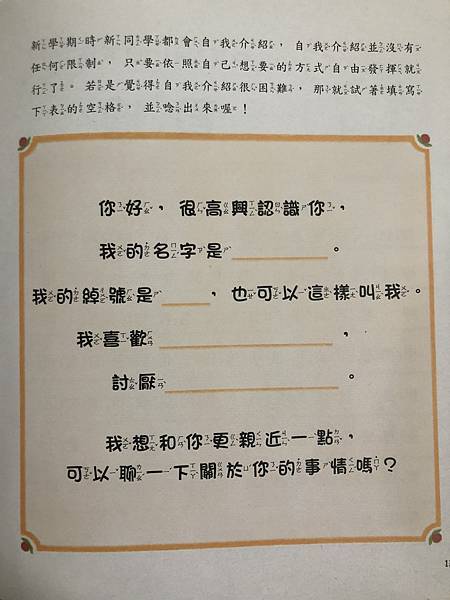 新學期時新同學都會自我介紹，自我介紹並沒有
任何限制，只要依照自己想要的方式自由發揮就
行了。若是覺得自我介紹很困難，那就試著填寫
下表的空格，並唸出來喔！
你好，很高興認識你，
我的名字是＿＿＿＿＿。
我的綽號是＿＿＿，也可以這樣叫我。
我喜歡＿＿＿＿＿＿＿＿，
討厭＿＿＿＿＿＿＿＿。
我想和你更親近一點，
可以聊一下關於你的事情嗎？